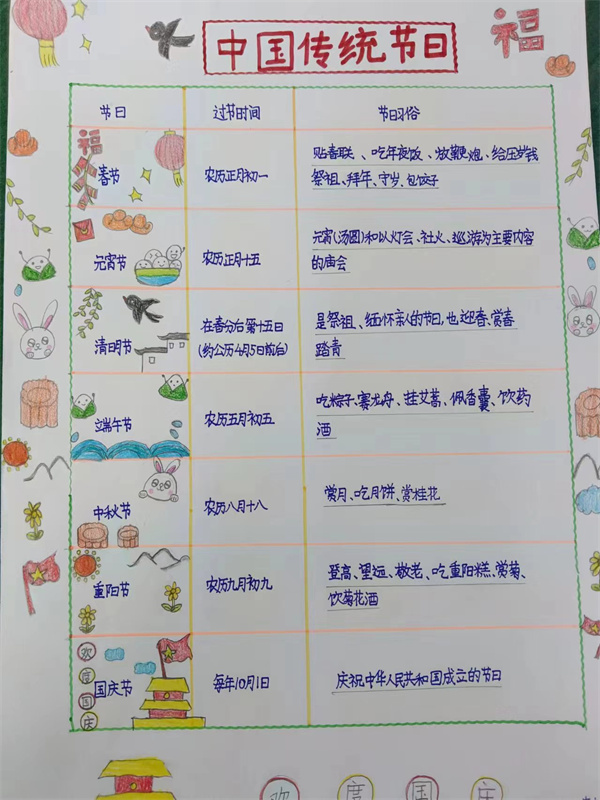 中国传统节日
福
节日 过节时间 节日习俗
福
春节 农历正月初一 贴春联、吃年夜饭、放鞭炮、给压岁钱
祭祖、拜年、守岁、包饺子
元宵节 农历正月十五 元宵(汤圆)和以灯会、社火、巡游为主要内容
的庙会
清明节 在春分后第十五日 是祭祖、缅怀亲人的节日,也迎春、赏春
(约公历4月5日前后) 踏青
端午节 农历五月初五 吃粽子、赛龙舟、挂艾蒿、佩香囊、饮药
酒
中秋节 农历八月十八 赏月、吃月饼、赏桂花
重阳节 农历九月初九 登高、望远、敬老、吃重阳糕、赏菊、
饮菊花酒
欢度国庆
国庆节 每年10月1 庆祝中华人民共和国成立的节日
欢度国庆